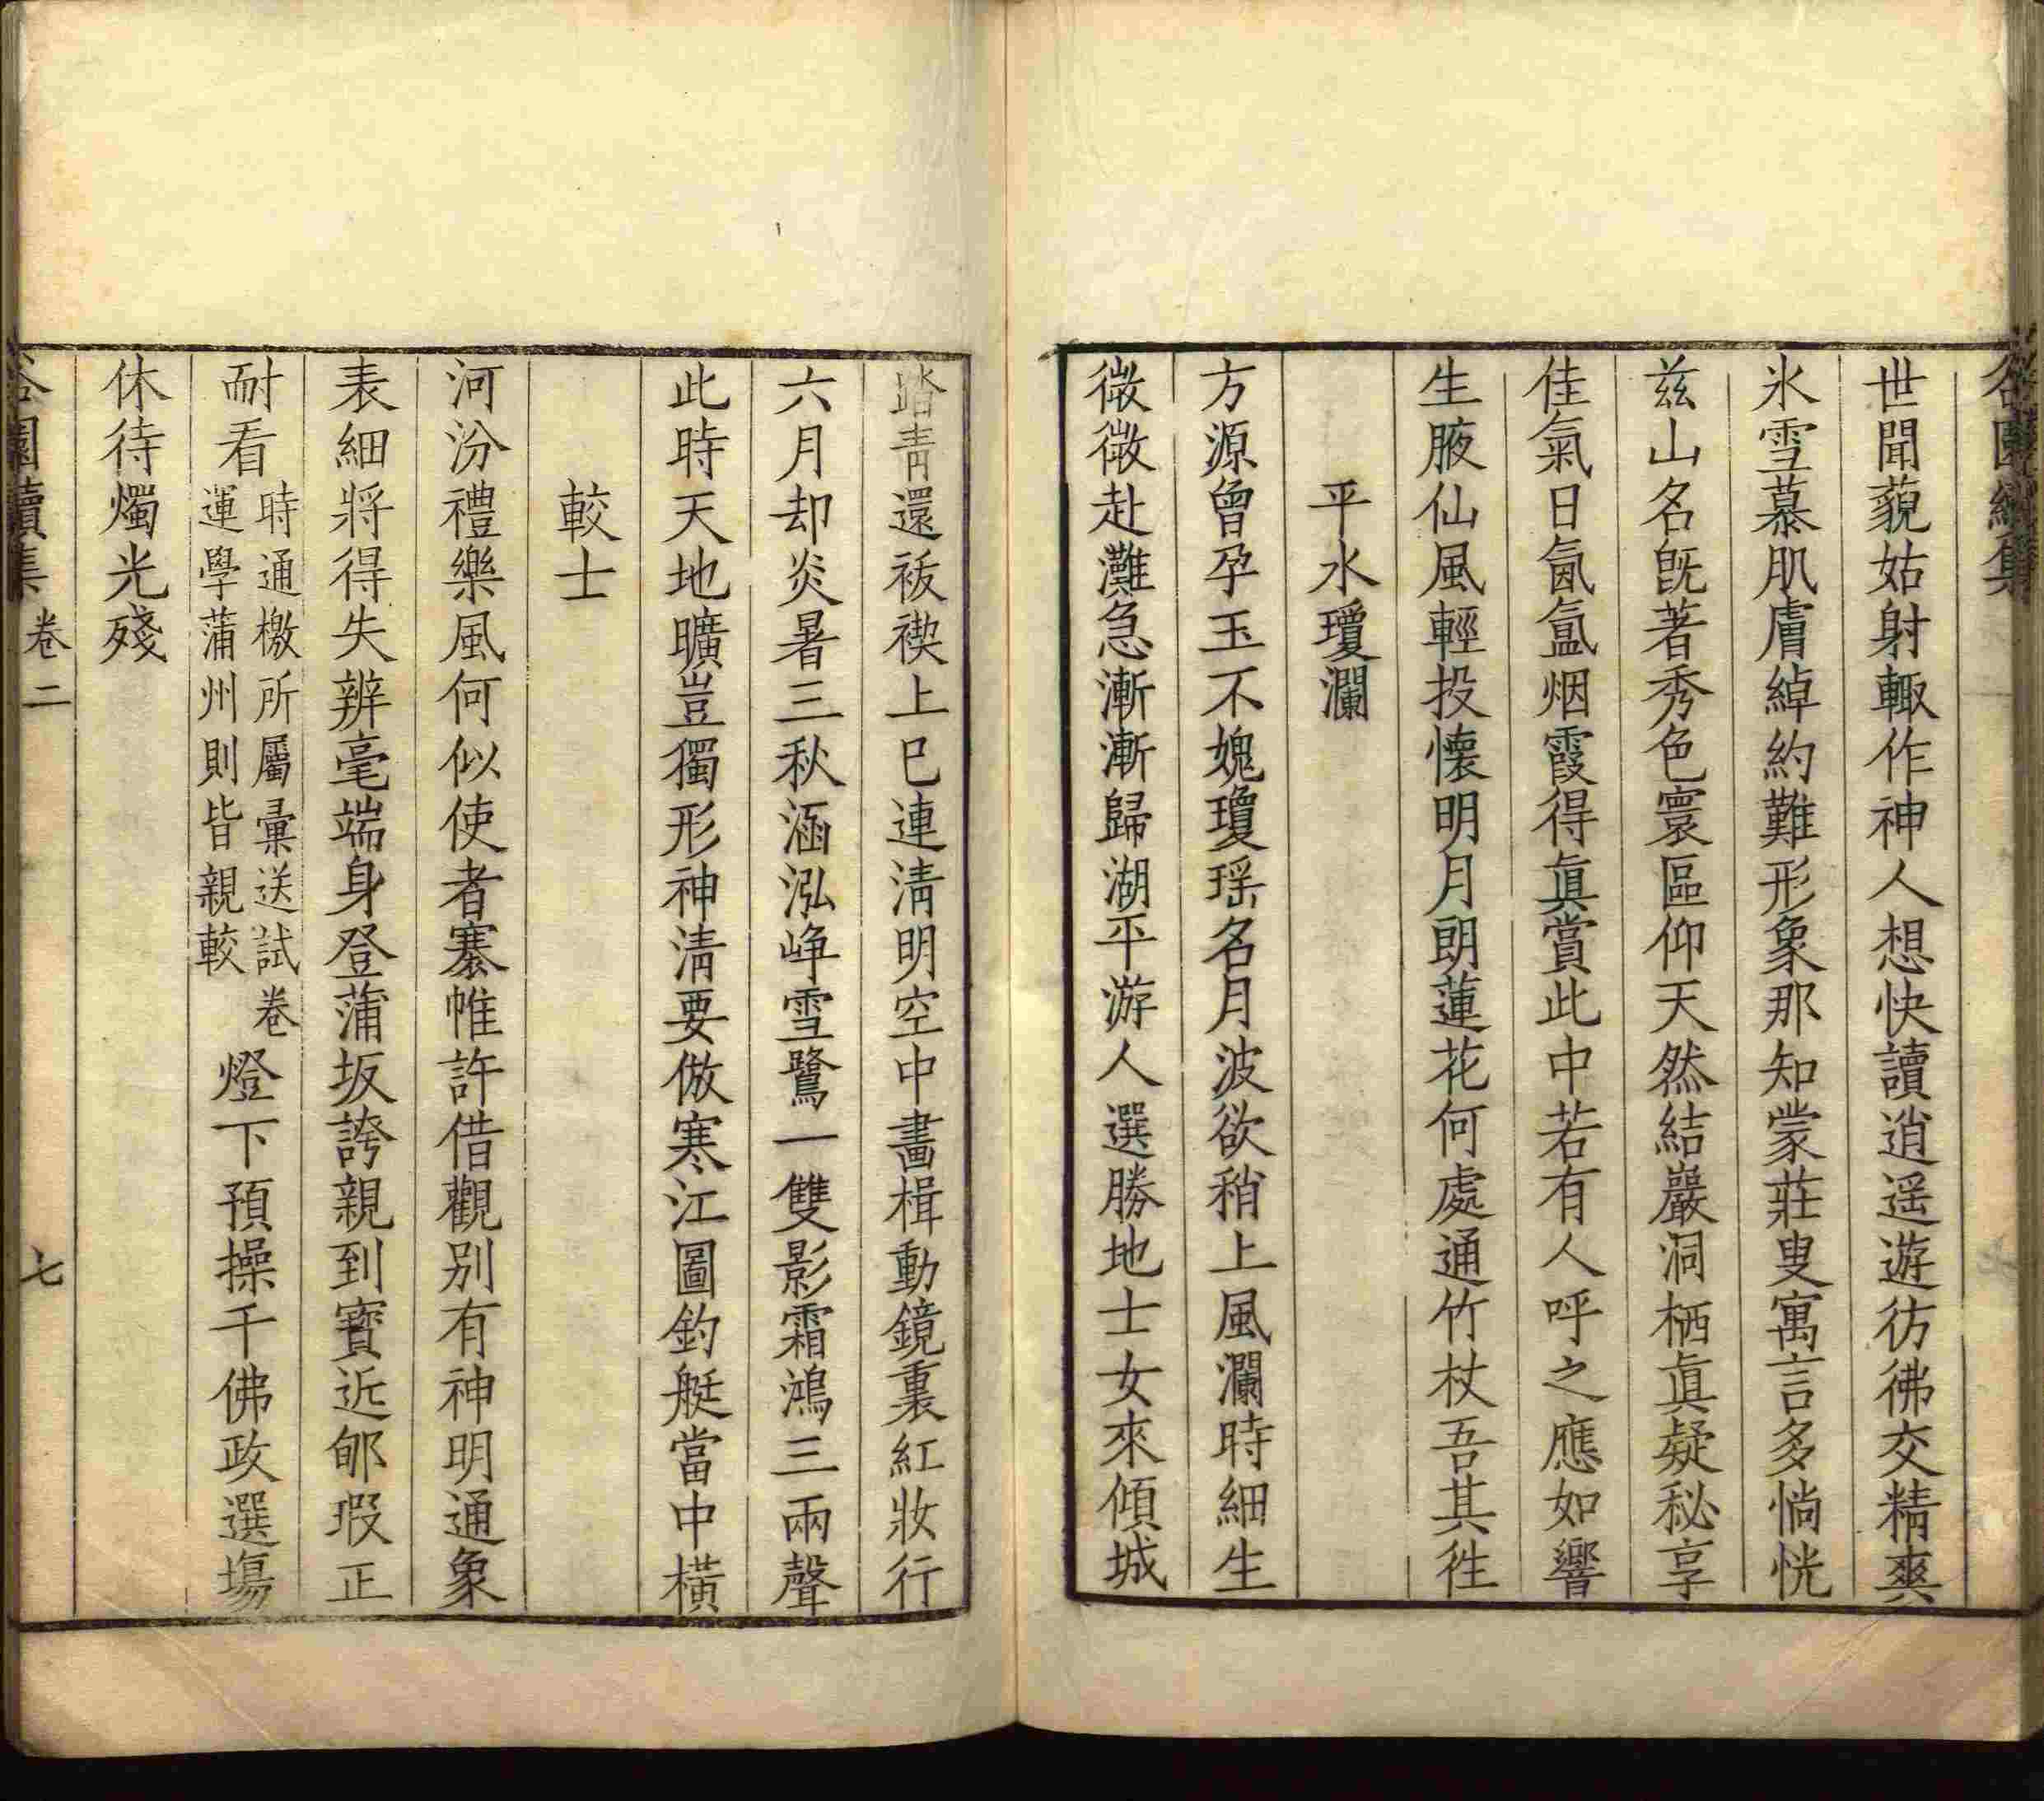 世聞藐姑射輙作神人想快讀逍遥遊彷彿交精爽
氷雪慕肌膚綽約難形象那知蒙莊叟寓言多惝恍
兹山名旣著秀色寰區仰天然結巖洞栖眞疑秘享
佳氣日氤氲烟霞得眞賞此中若有人呼之應如響
生腋仙風輕投懐明月朗蓮花何處通竹杖吾其徃
平水瓊瀾
方源曾孕玉不媿瓊瑶名月波欲稍上風瀾時細生
微微赴灘急漸漸歸湖平游人選勝地士女來傾城
踏靑還祓禊上巳連淸明空中畵楫動鏡裏紅妝行
六月却炎暑三秋涵泓崢雪鷺一雙影霜鴻三兩聲
此時天地曠豈獨形神淸要倣寒江圖釣艇當中橫
較士
河汾禮樂風何似使者褰帷許借觀别有神明通象
表細將得失辨毫端身登蒲坂誇親到寳近郇瑕正
耐看時通檄所屬彙送試卷運學蒲州則皆親較燈下預操千佛政選塲
休待燭光殘
卷二
七